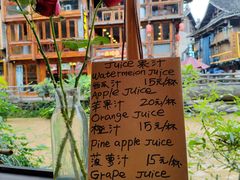 Juice 果汁
Watermelon Juice
西瓜汁 15元/杯
Apple Juice
苹果汁 20元/杯
Orange Juice
橙汁 15元/杯
Pine apple juice
菠萝汁 15元/杯
Grape Juice